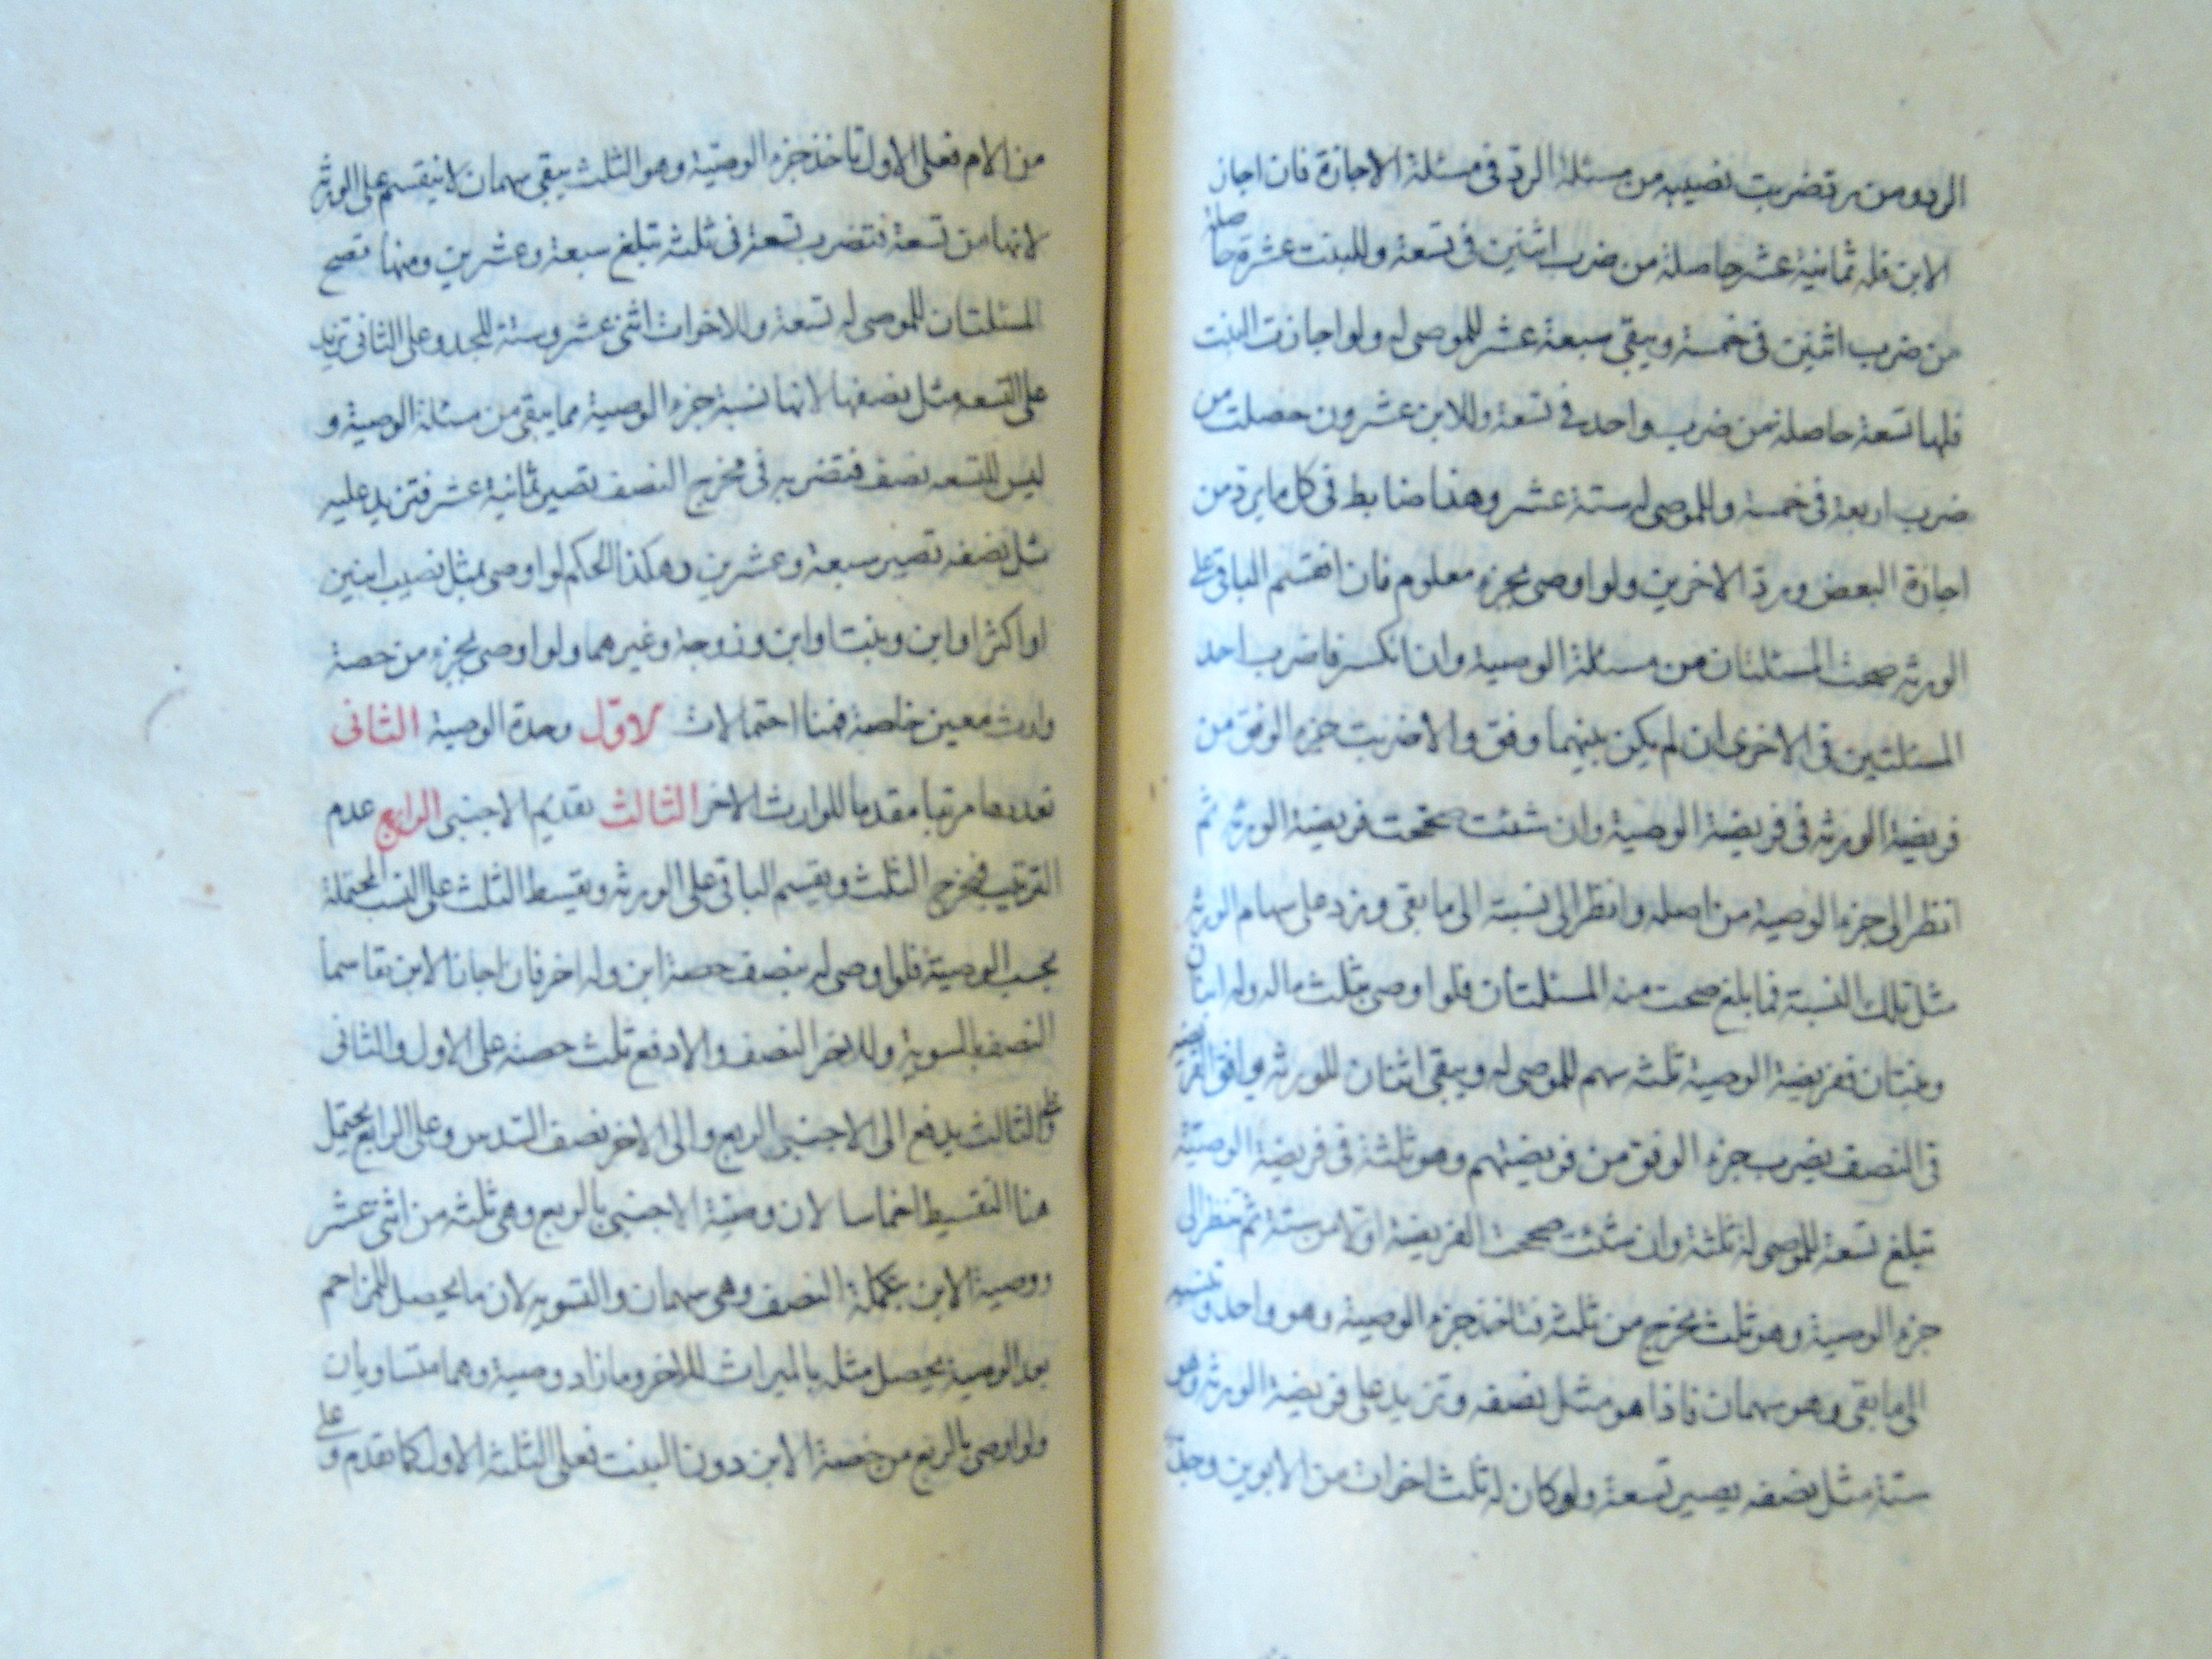 الرد ومن يرد تضربت نصيبه من مسئلة الرد فى مسئلة الاجازة فان اجاز
الابن فله ثمانية عشر حاصلة من ضرب اثنين فى تسعة وللبنت عشرة حاصلة
من ضرب اثنين فى خمسة ويبقى سبعة عشر للموصى له ولو اجازت البنت
فلها تسعة حاصلة من ضرب واحد فى تسعة وللابن عشرون حصلت من
ضرب اربعة فى خمسة وللموصى له ستة عشر وهذا ضابط فى كل ما يرد من
اجازة البعض ورد الاخرين ولو اوصى بجزء معلوم فان انقسم الباقى على
الورثه صحت المسئلتان من مسئلة الوصية وان انكسر فاضرب احد
المسئلتين فى الاخرى ان لم يكن بينهما وفق والا ضربت جزء الوفق من
فريضة الورثه فى فريضة الوصية وان شئت صححت فريضة الورثه ثم
انظر الى جزء الوصية من اصله وانظر الى نسبة الى ما بقى وزد على سهام الورثه
مثل تلك النسبة فما بلغ صحت منه المسئلتان فلو اوصى بثلث ماله وله ابنان
وبنتان ففريضة الوصية ثلثه سهم للموصى له ويبقى اثنان للورثه يوافق الفريضه
فى النصف يضرب جزء الوفق من فريضتهم وهو ثلثة فى فريضة الوصية
تبلغ تسعة للموصى له ثلثة وان شئت صححت الفريضة اولا من ستة ثم تنظر الى
جزء الوصية وهو ثلث يخرج من ثلثه فتاخذ جزء الوصية وهو واحد وتنسبه
الى ما بقى وهو سهمان فاذا هو مثل نصفه وتزيد على فريضة الورثه وهو
ستة مثل نصفه يصير تسعة ولو كان له ثلث اخوات من الابوين وجد
من الام فعلى الاول تاخذ جزء الوصية وهو الثلث يبقى سهمان لا ينقسم على الورثه
لانها من تسعة فتضرب تسعة فى ثلثه تبلغ سبعة وعشرين ومنها تصح
المسئلتان للموصى له تسعة وللاخوات اثنى عشر وستة للجد وعلى الثانى تزيد
على التسعه مثل نصفها لانها نسبة جزء الوصية مما يبقى من مسئلة الوصية و
ليس للتسعه نصف فتضربه فى مخرج النصف تصير ثمانية عشر فتزيد عليه
مثل نصفه تصير سبعة وعشرين وهكذا الحكم لو اوصى بمثل نصيب ابنين
او اكثر او ابن وبنت او ابن وزوجة وغيرهما ولو اوصى بجزء من حصة
وارث معين خاصة فهنا احتمالات الاول وحدة الوصية الثانى
تعددها مرتبا مقدما للوارث الاخر الثالث تقديم الاجنبى الرابع عدم
الترتيب فيخرج الثلث ويقسم الباقى على الورثه ويقسط الثلث على النسب المحتملة
بحسب الوصية فلو اوصى له بنصف حصة ابن وله اخر فان اجاز الابن تقاسما
النصف بالسوية وللاخر النصف والا دفع ثلث حصته على الاول والثانى
وعلى الثالث يدفع الى الاجنبى الربع والى الاخر نصف السدس وعلى الرابع يحتمل
هنا التقسيط اخماسا لان وصية الاجنبى بالربع وهى ثلثه من اثنى عشر
ووصية الابن بتكملة النصف وهى سهمان والتسويه لان ما يحصل للمزاحم
بعد الوصية يحصل مثله بالميراث للاخر وما زاد وصية وهما متساويان
ولو اوصى بالربع من حصة الابن دون البنت فعلى الثلثة الاول كما تقدم وعلى